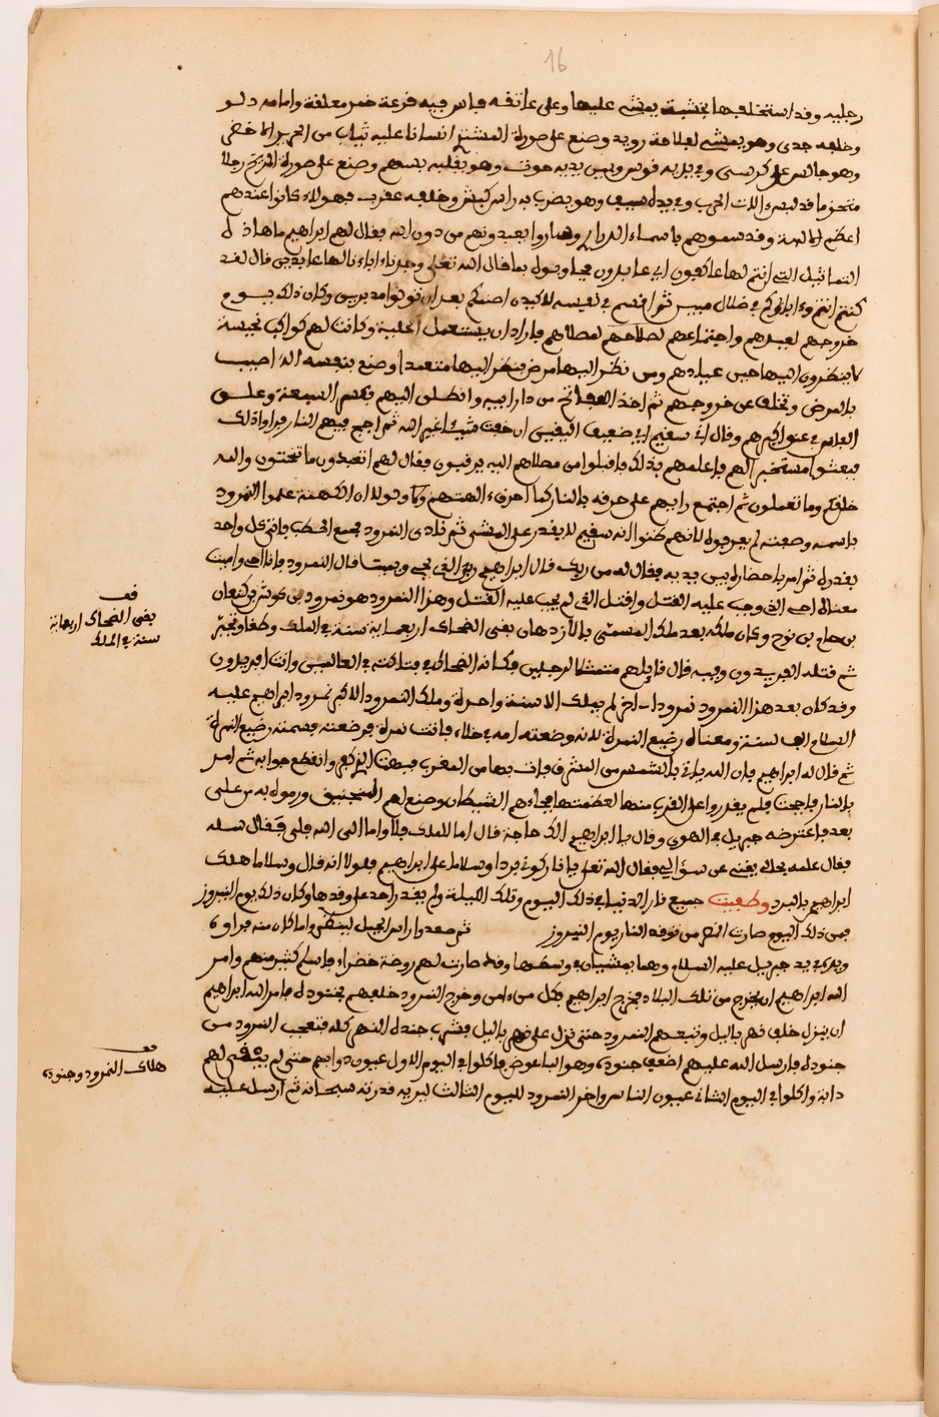 16
رجليه وقد استخلفها بخشبة يمشي عليها وعلى عاتقه فاس فيه قرعة خمر معلقة وامامه دلو
وخلفه جدى وهو يمشي وصنع على صورة المشتري انسانا عليه ثياب من الحرير الاخضر
وهو جالس على كرسي وفي يديه قوس وبين يديه حوت وهو يقلبه بسهم وصنع على صورة المريخ رجلا
قد لبس الات الحرب وفي يده سيف وهو يضرب به راس كبش وخلفه عقرب فهولاء كانوا عندهم
اعظم الالهة وقد سموهم باسماء الدراري وصاروا يعبدونهم من دون الله فقال لهم ابراهيم ما هاذه
التماثيل التي انتم لها عاكفون اي عابدون بما قال الله تعلى وجدنا ءاباءنا لها عابدين قال لقد
كنتم انتم وءاباؤكم في ضلال مبين ثم اقسم في نفسه لاكيدن اصنامكم بعد ان تولوا مدبرين وكان ذلك يوم
خروجهم لعيدهم واجتماعهم لصلاتهم لمصلاهم فاراد ان يستعمل الحيلة وكانت لهم كواكب نحيسة
لا ينظرون اليها حين عيدهم ومن نظر اليها مرض فنظر اليها متعمدا وصنع بنفسه انه اصيب
بالمرض وتخلف عن خروجهم ثم اخذ من دار ابيه وانطلق اليهم فكسر السبعة وعلق
الفاس في عنق اكبرهم وقال اني سقيم اي ضعيف اليقين ان خفت شيئا غير الله ثم اجج فيهم النار فراوا ذلك
فبعثوا مستخبرا لهم فاعلمهم بذلك فاقبلوا من مصلاهم اليه يزفون فقال لهم اتعبدون ما تنحتون والله
خلقكم وما تعملون ثم اجتمع رايهم على حرقه بالنار كما احرق ءالهتهم ولولا ان الكهنة علموا النمرود
باسمه وصفته لم يعرفوه لانهم ظنوا انه سقيم لا يقدر على المشي ثم نادى النمرود بجمع الحطب فاتى كل واحد
بقدره ثم امر باحضاره بين يديه فقال له من ربك قال ابراهيم ربي الذي يحيي ويميت قال النمرود فانا احيي واميت
معناه احيي الذي وجب عليه القتل واقتل الذي لم يجب عليه القتل وهذا النمرود هو نمرود بن كوش بن كنعان
بن حام بن نوح وكان ملكه بعد ملك المسمى بالازدهاق يعني الضحاك اربعماية سنة في الملك وطغا وتجبر
ثم قتله افريدون وفيه قال قايلهم فكانه الضحاك في فتكاته في العالمين وانت افريدون
وقد كان بعد هذا النمرود نمرود اخر لم يملك الا سنة واحدة وملك النمرود الاكبر نمرود ابراهيم عليه
السلام الف سنة ومعناه رضيع النمرة لانه وضعته امه في خلاء فاتت نمرة فرضعته فسمته رضيع النمرة
ثم قال له ابراهيم فان الله ياتي بالشمس من المشرق فات بها من المغرب فبهت الذي كفر وانقطع جوابه ثم امر
بالنار فاججت فلم يقدروا على القرب منها لعظمتها فجاءهم الشيطان وصنع لهم المنجنيق ورموه به من على
بعد فاعترضه جبريل في الهوى وقال يا ابراهيم الك حاجة قال اما للملك فلا واما الى الله فلى فقال سله
فقال علمه بحالي يغني عن سؤالي فقال الله تعلى يا نار كوني بردا وسلاما على ابراهيم فلولا انه قال وسلاما هلك
ابراهيم بالبرد وطفيت جميع نار الدنيا في ذلك اليوم وتلك الليلة ولم يقدر احد على وقدها وكان ذلك يوم النيروز
فمن ذلك اليوم صارت من توقد النار يوم النيروز ثم صعدوا راس الجبل لينظروا ما كان منه فراوه
ويده في يد جبريل عليه السلام وهما يمشيان في وسطها وقد صارت لهم روضة خضراء فاسلم كثير منهم وامر
الله ابراهيم ان يخرج من تلك البلاد فخرج ابراهيم بكل من ءامن وخرج النمرود خلفهم بجنوده فامر الله ابراهيم
ان ينزل خلف نهر باليل وتبعهم النمرود حتى نزل على نهر باليل فشرب جنده النهر كله فتعجب النمرود من
جنوده فارسل الله عليهم اضعف جنوده وهو الباعوض فاكلوا في اليوم الاول عيون دوابهم حتى لم يبقى لهم
دابة واكلوا في اليوم الثاني عيون الناس واخر النمرود لليوم الثالث ليريه قدرته سبحانه ثم ارسل عليه
قف
بقى الضحاك اربعماية
سنة في الملك
قف
هلاك النمرود وجنوده